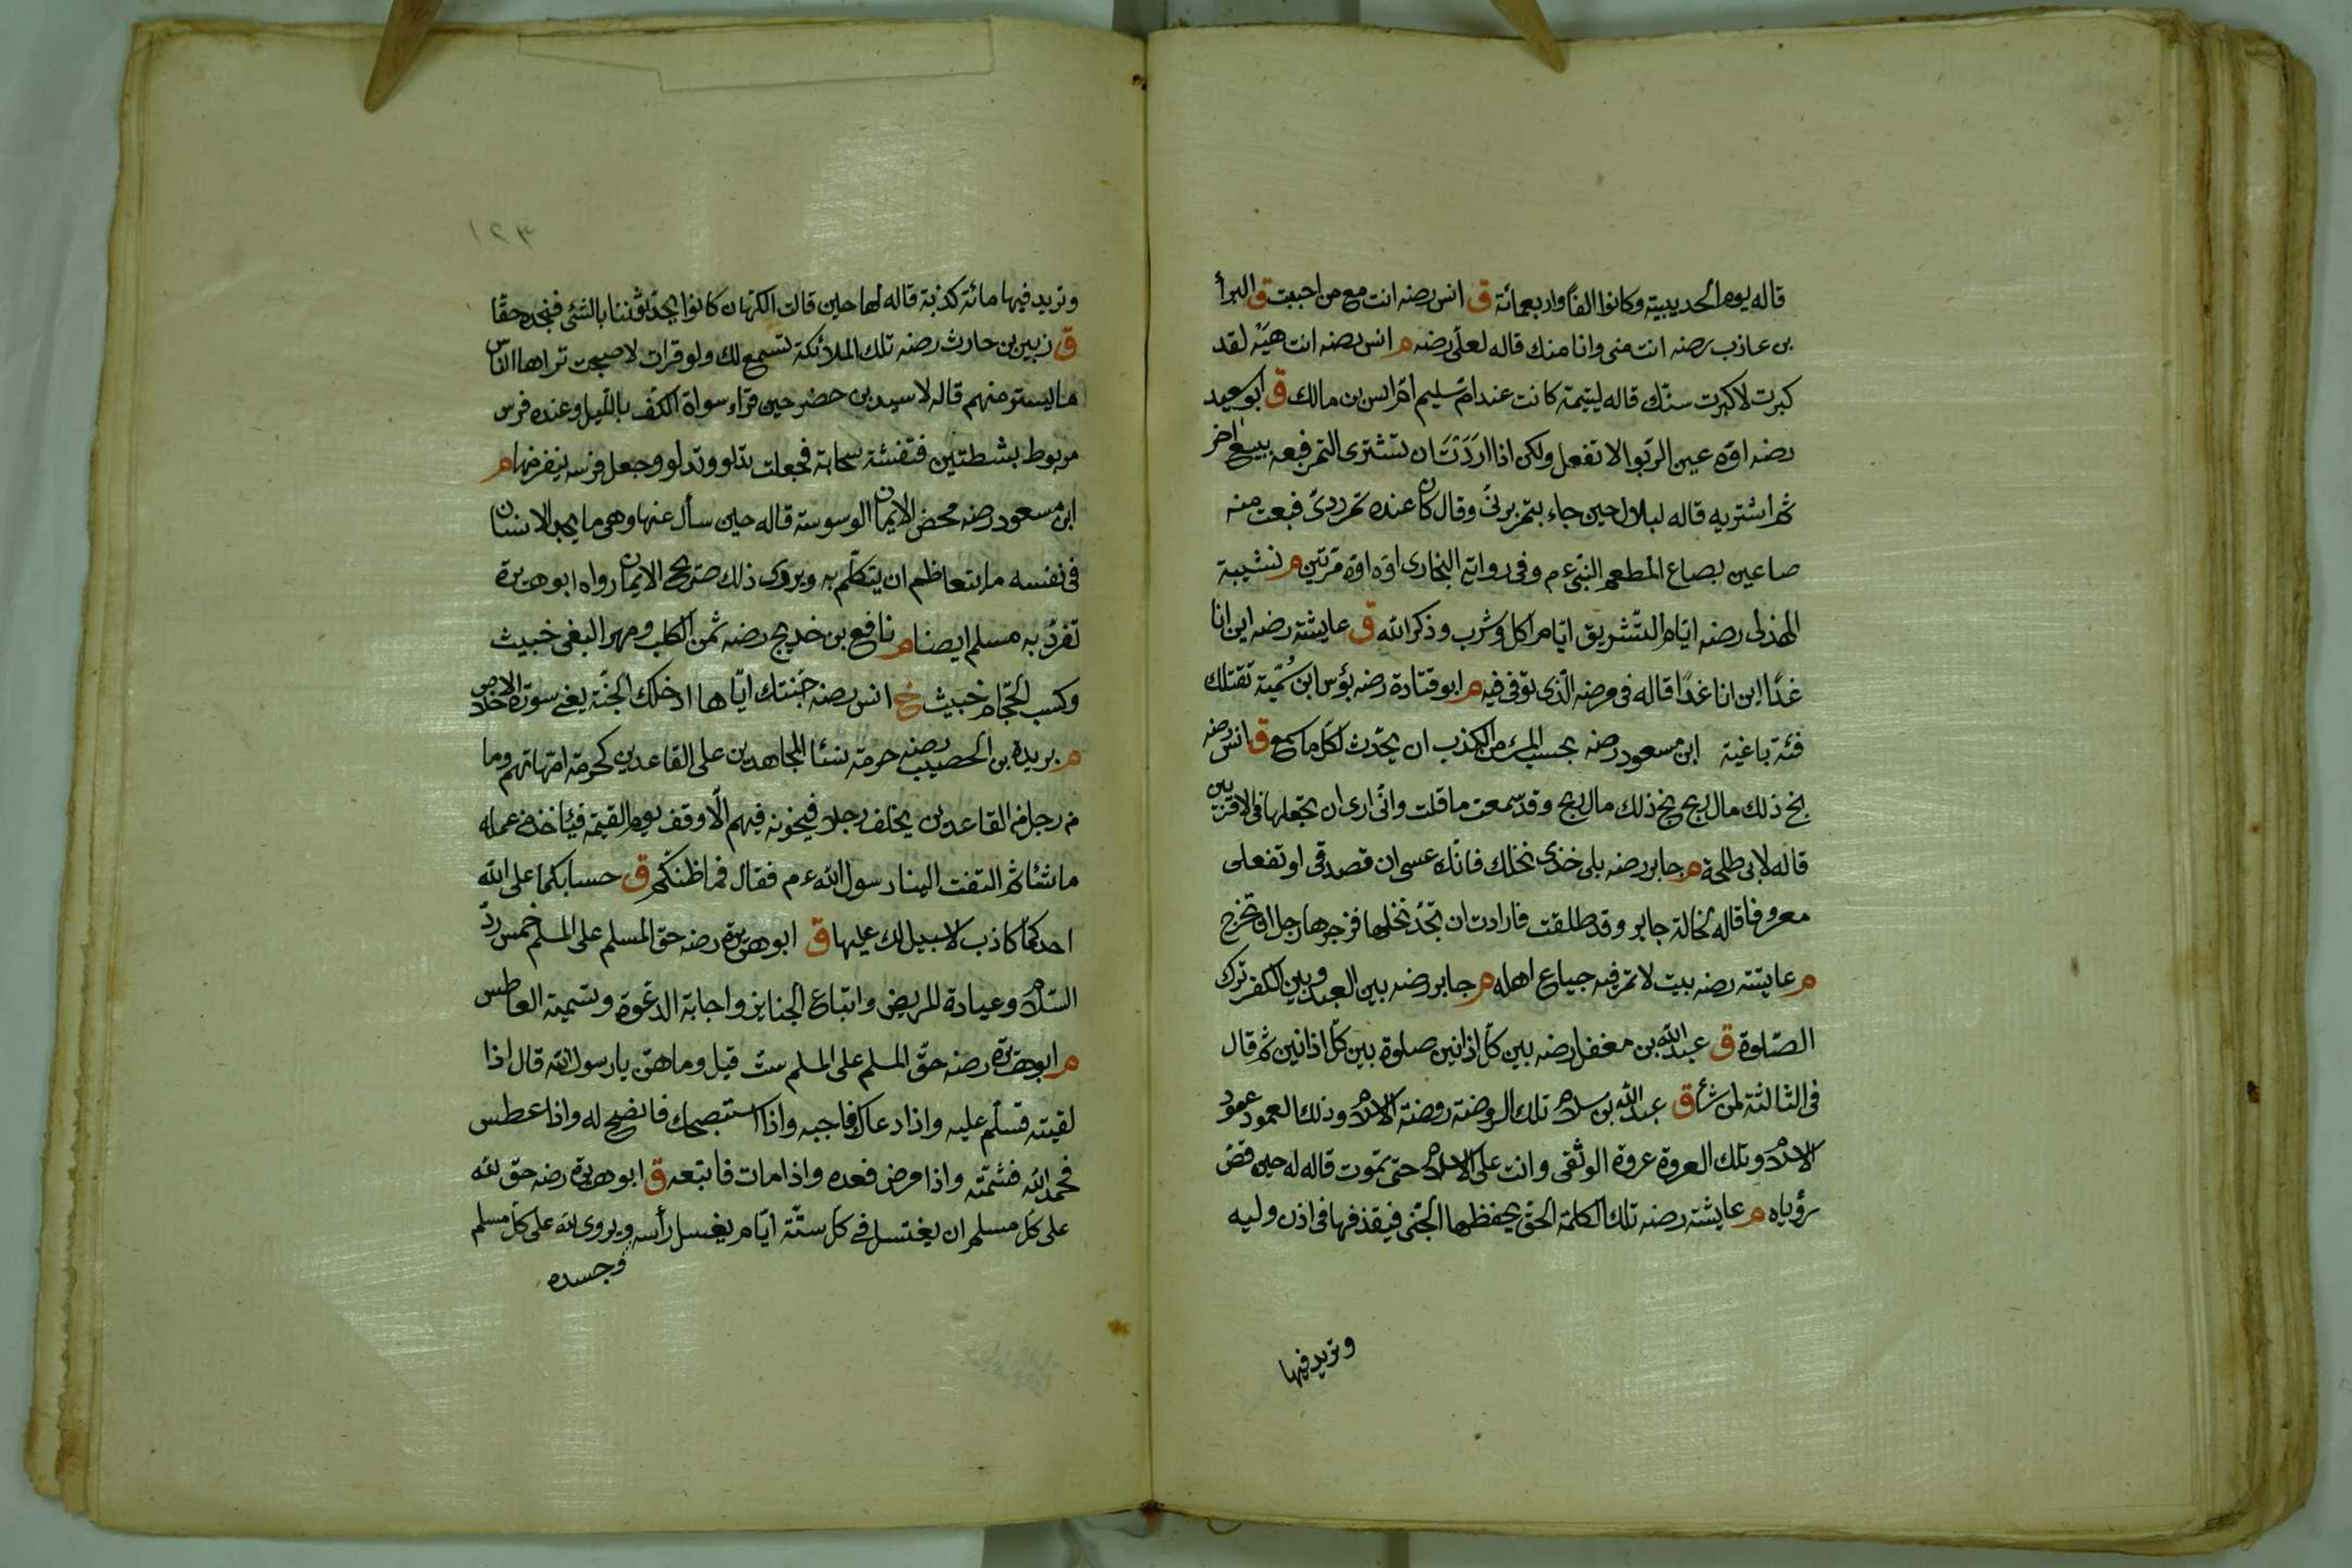 قاله يوم الحديبية وكانوا الفا واربعمائة ق انس رضه انت مع من احببت ق البرأ
بن عاذب رضه انت منى وانا منك قاله لعلى رضه م انس رضه انت هيه لقد
كبرت لا كبرت سنك قاله ليتيمة كانت عند ام سليم ام انس بن مالك ق ابو سعيد
رضه اوه عين الربوا لا تفعل ولكن اذا اردت ان تشترى التمر فبعه ببيع اخر
ثم اشتر به قاله لبلال حين جاء بتمر برنى وقال كان عنده تمر ردى فبعت منه
صاعين بصاع لمطعم النبى ءم وفى رواية البخارى اوه اوه مرتين م نشيبة
الهذلى رضه ايام التشريق ايام اكل وشرب وذكر الله ق عايشة رضه اين انا
غدا اين انا غدا قاله فى مرضه الذى توفى فيه م ابو قتادة رضه بؤس ابن سمية تقتلك
فئة باغية ابن مسعود رضه بحسب المرء من الكذب ان يحدث لكل ما سمع ق انس رضه
بخ ذلك مال ربح بخ ذلك مال ربح وقد سمعت ما قلت وانى ارى ان تجعلها فى الاقربين
قاله لابى طلحة م جابر رضه بلى خذى نخلك فانك عسى ان تصدقى او تفعلى
معروفا قاله لخالة جابر وقد طلقت فارادت ان تجد نخلها فزجرها رجل ان تخرج
م عايشة رضه بيت لا تمر فيه جياع اهله م جابر رضه بين العبد وبين الكفر ترك
الصلوة ق عبد الله بن مغفل رضه بين كل اذانين صلوة بين كل اذانين ثم قال
فى الثالثة لمن شأ ق عبد الله بن سلام تلك الروضة روضة الاسلام وذلك العمود عمود
الاسلام وتلك العروة عروة الوثقى وانت على الاسلام حتى تموت قاله له حين قص
رؤياه م عايشة رضه تلك الكلمة الحق يحفظها الجنى فيقذفها فى اذن وليه
وتزيد فيها
١٢٣
وتزيد فيها مائة كذبة قاله لها حين قالت الكهان كانوا يحدثوننا بالشئ فنجده حقا
ق زيد بن حارث رضه تلك الملائكة تستمع لك ولو قرات لاصبحت تراها الناس
ما يستتر منهم قاله لاسيد بن حضر حين قراء سواة الكف بالليل وعنده فرس
مربوط بشطتين فتغشته سحابة فجعلت تدلو وتدلو وجعل فرسه ينفر منها م
ابن مسعود رضه محض الايمان الوسوسة قاله حين سأل عنها وهى ما يجد الانسان
فى نفسه ما يتعاظم ان يتكلم به ويروى ذلك صريح الايمان رواه ابو هريرة
تفرد به مسلم ايضا م نافع بن خديج رضه ثمن الكلب ومهر البغى خبيث
وكسب الحجام خبيث خ انس رضه حبتك اياها ادخلك الجنة يعنى سورة الاخلاص
م بريدة بن الحصيب رضه حرمة نسئا المجاهدين على القاعدين كحرمة امهاتهم وما
من رجل من القاعدين يخلف رجلا فيخونه فيهم الا وقف يوم القيمة فيأخذ من عمله
ما شئا ثم التفت الينا رسول الله ءم فقال فما ظنكم ق حسابكما على الله
احدكما كاذب لا سبيل لك عليها ق ابو هريرة رضه حق المسلم على المسلم خمس رد
السلام وعيادة المريض واتباع الجنايز واجابة الدعوة وتسمية العاطس
م ابو هريرة رضه حق المسلم على المسلم ست قيل وما هن يا رسول الله قال اذا
لقيته فسلم عليه واذا دعاك فاجبه واذا استنصحك فانصح له واذا عطس
فحمد الله فشمته واذا مرض فعده واذا مات فاتبعه ق ابو هريرة رضه حق لله
على كل مسلم ان يغتسل فى كل ستة ايام يغسل رأسه ويروى لله على كل مسلم
وجسده